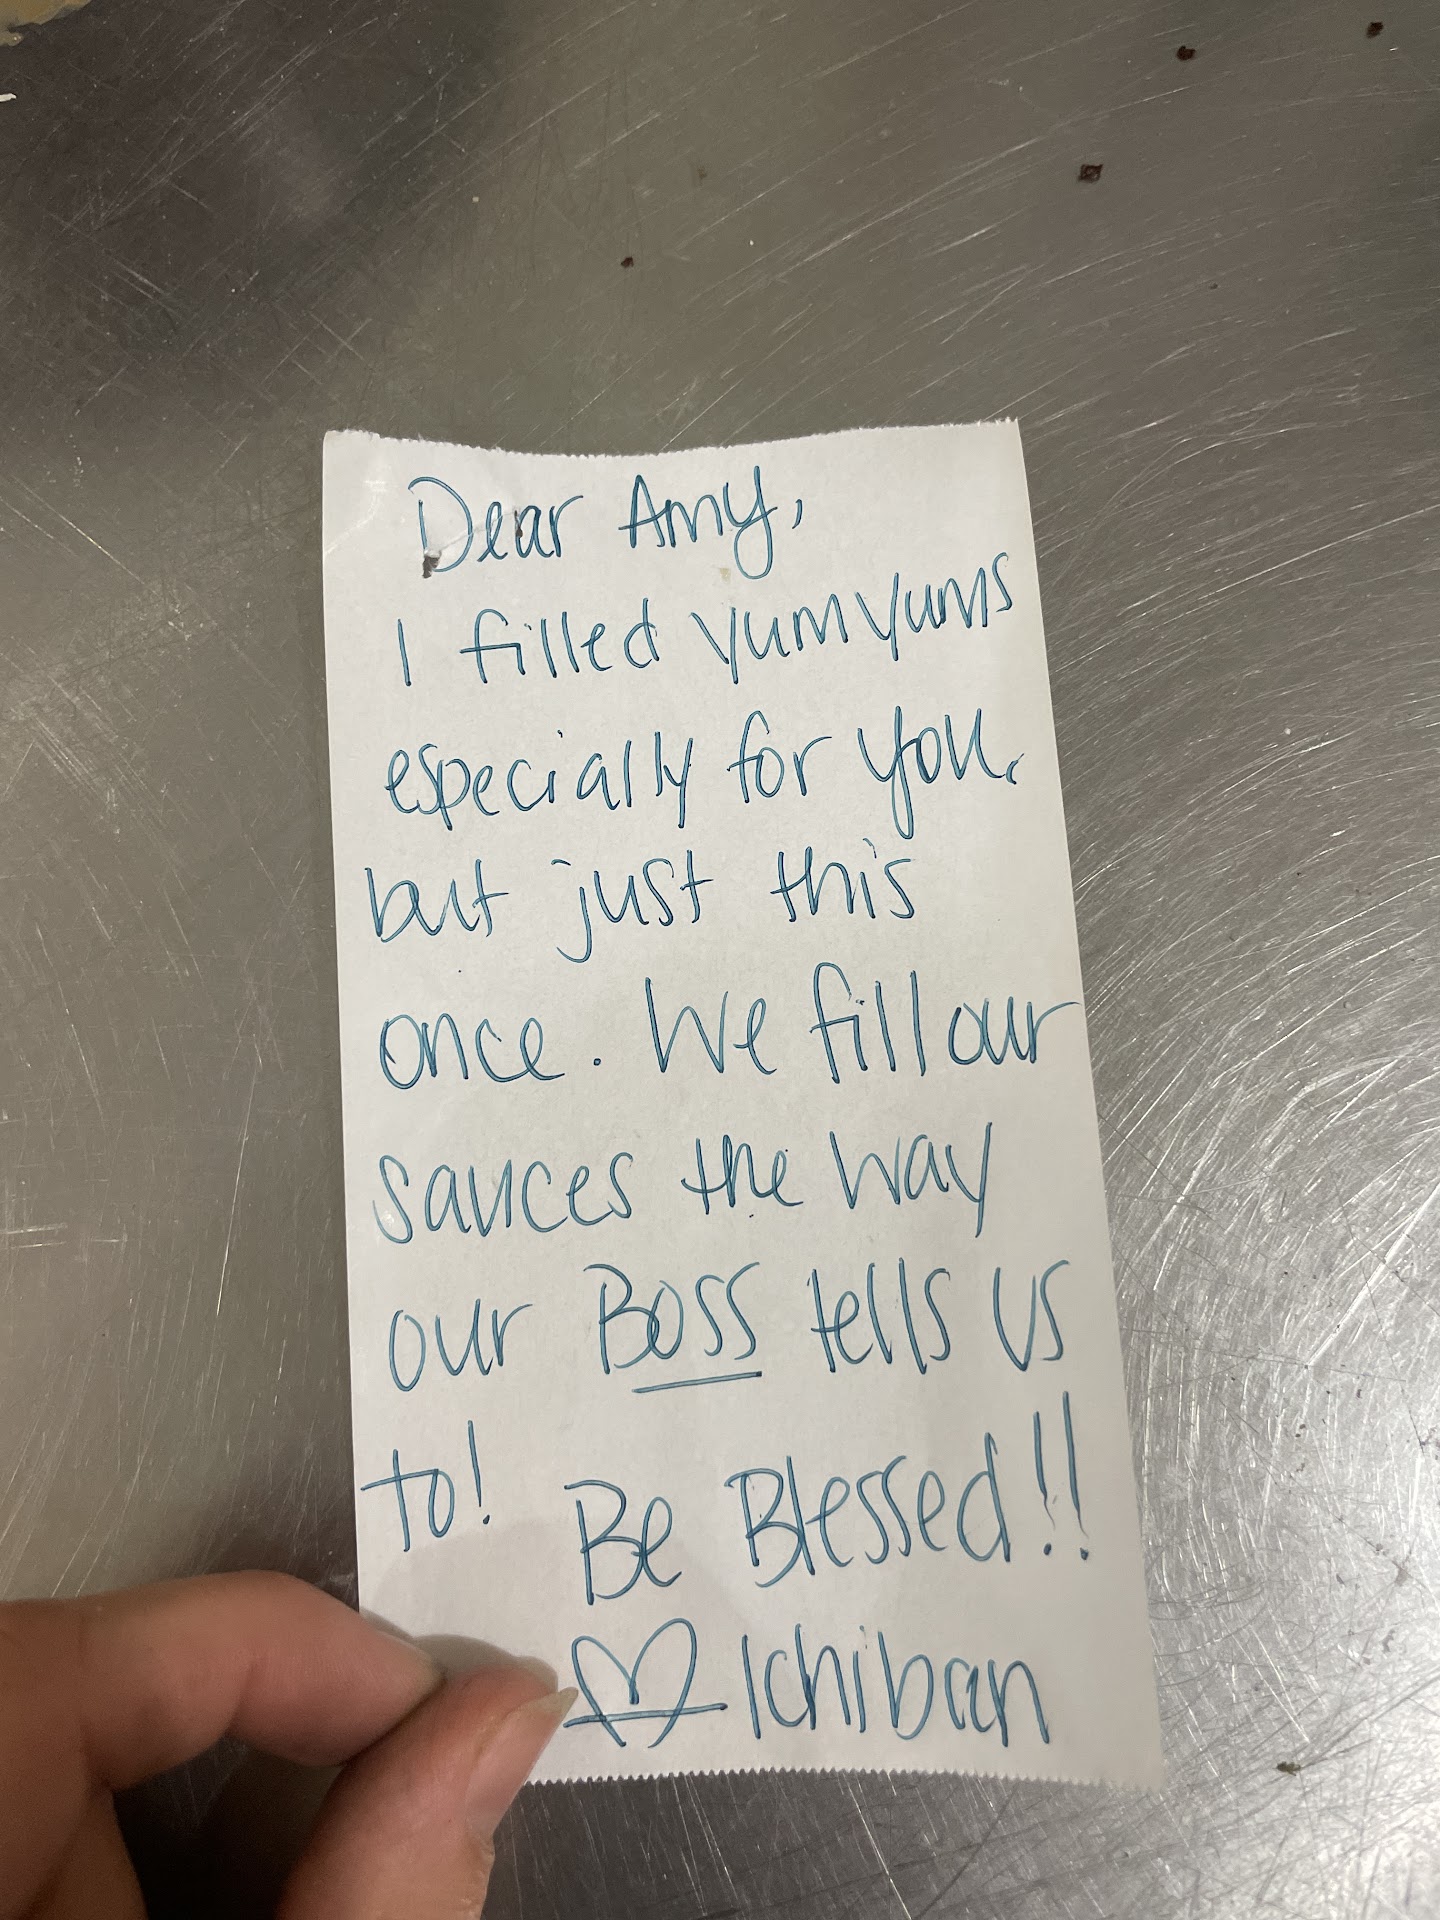 Dear Amy,
I filled yumyums
especially for you.
but just this
once. We fill our
sauces the way
our Boss tells us
to! Be Blessed!!
Ichiban